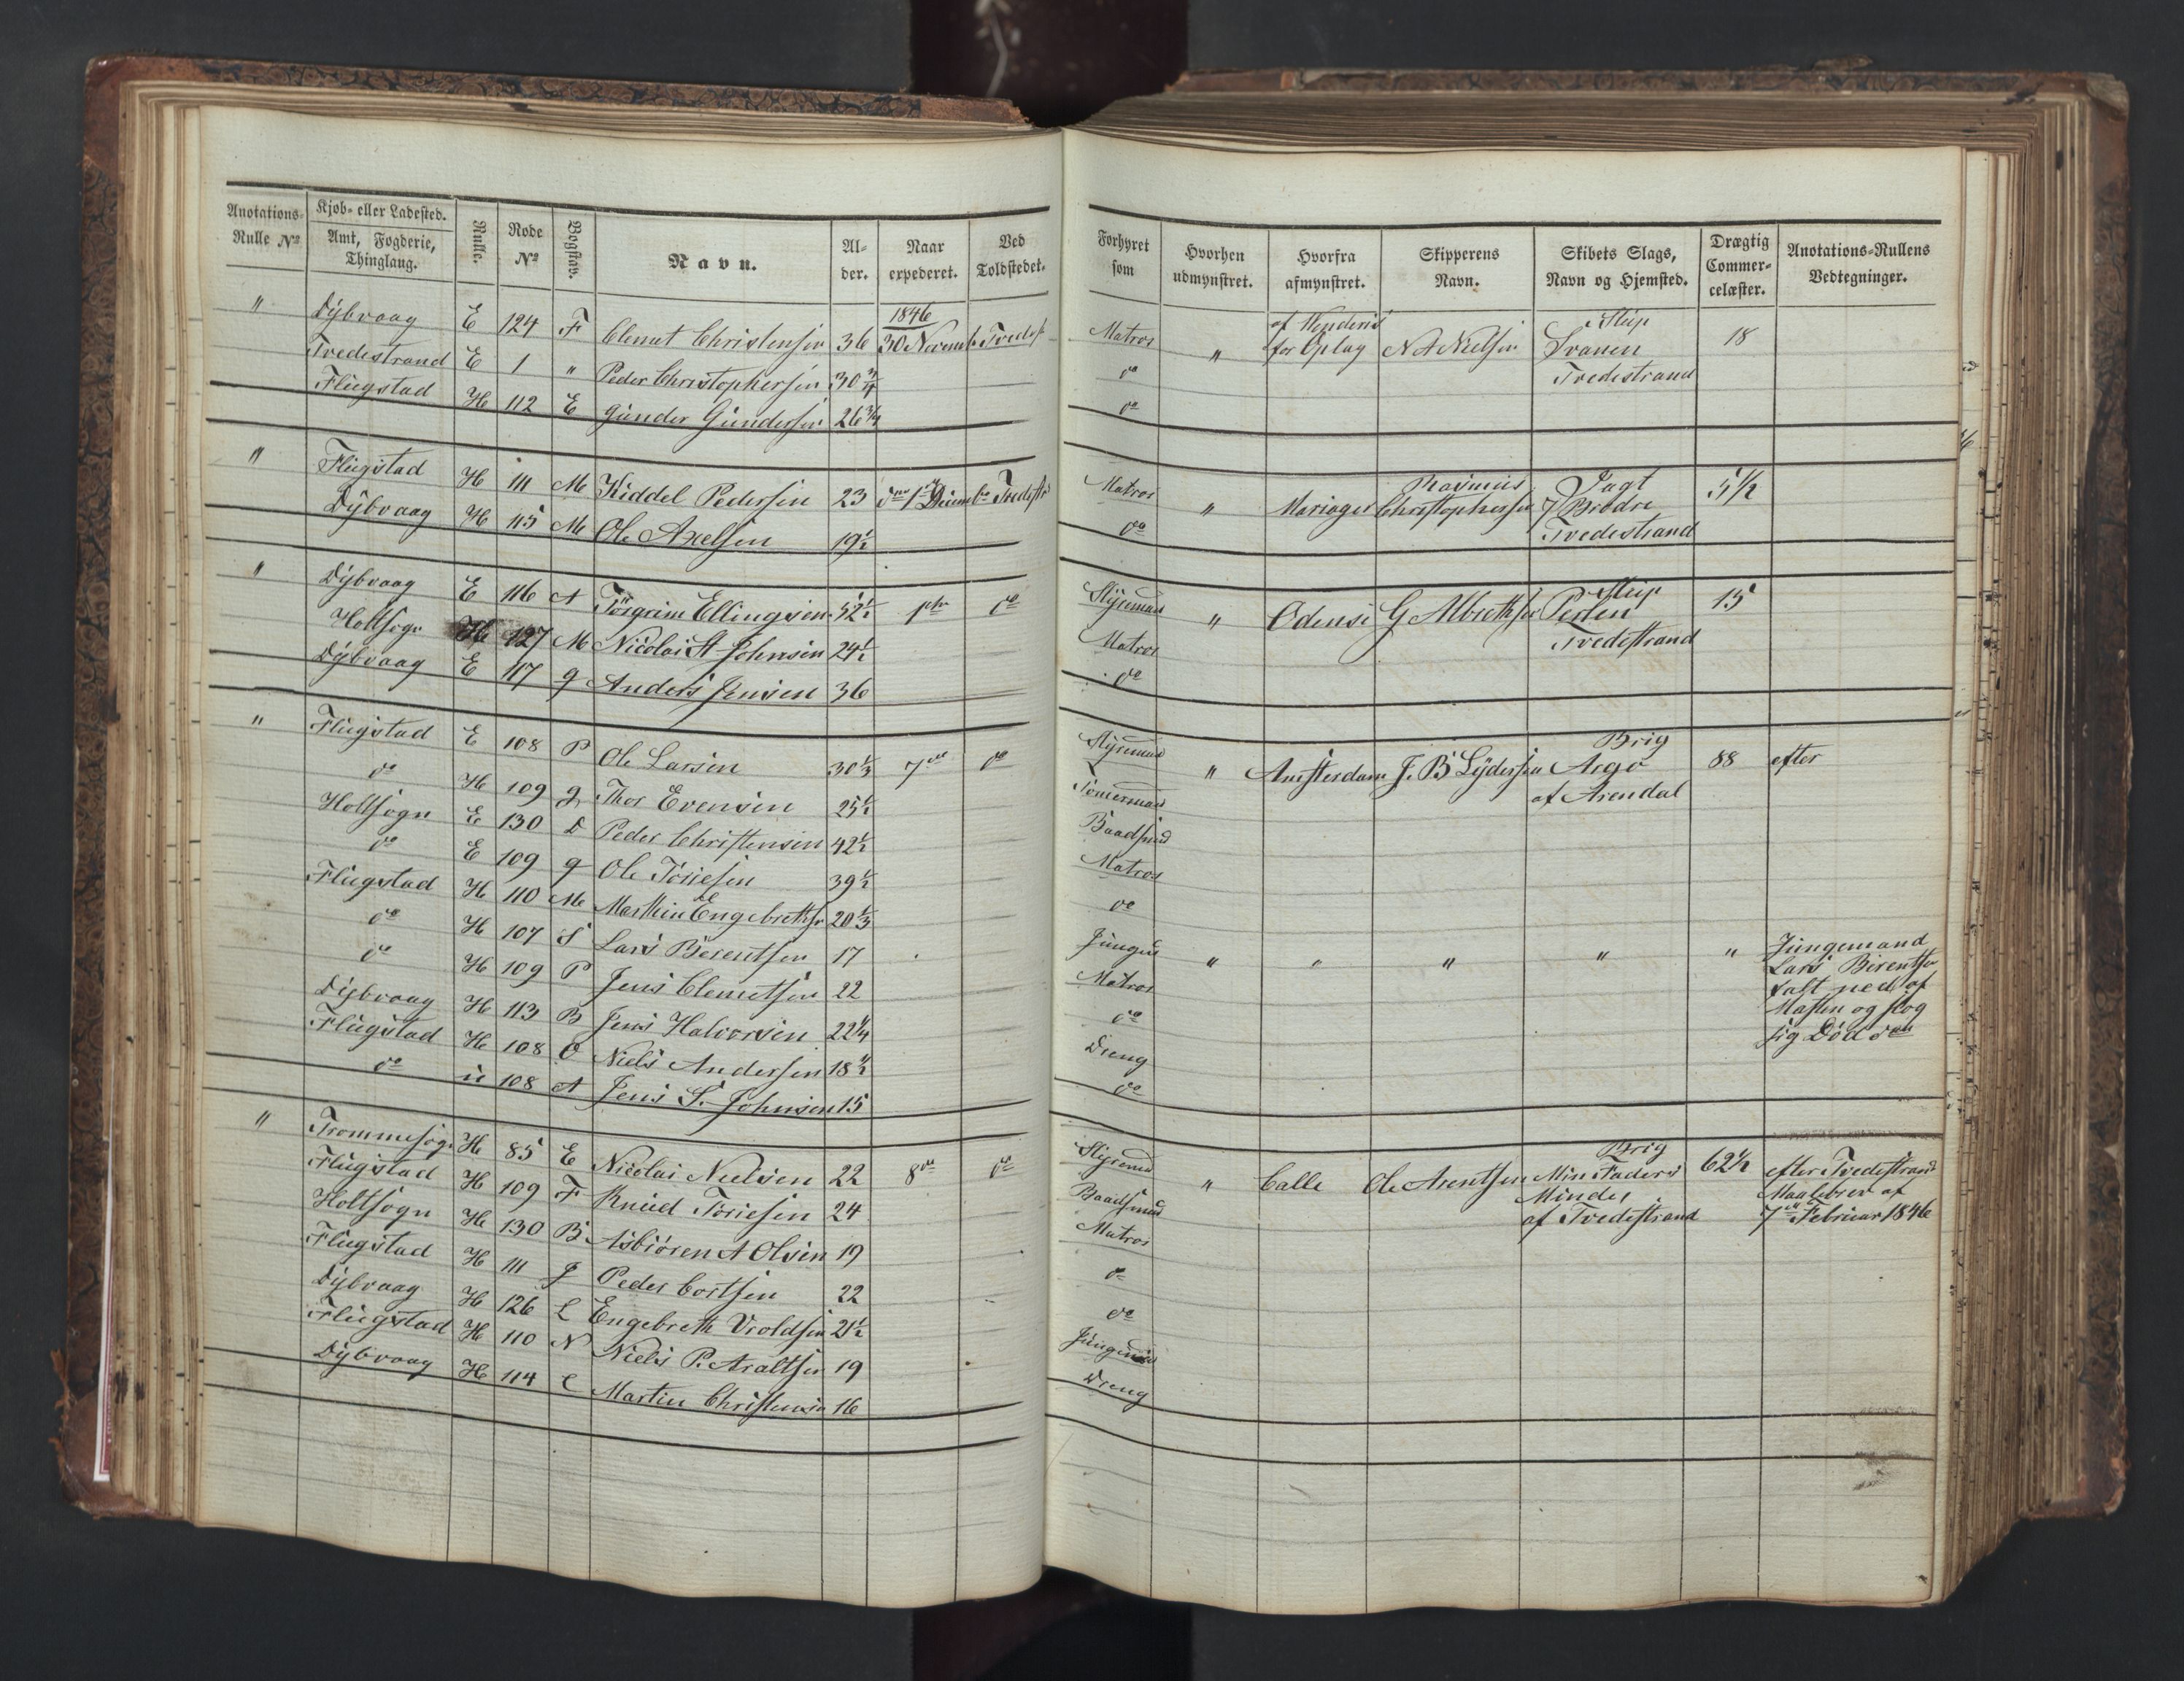 Anotations-Rulle No | Kjøb- eller Ladested. Amt, Fogderie, Thinglaug. | Rulle. | Rode No | Bogstav. | Navn. | Alder. | Naar expederet. | Ved Toldstedet.
" | Dybvaag | E | 124 | F | Clemet Christensen | 36 | 1846 30 Novemb. | Tvedest
Tvedestrand | E | 1 | " | Peder Christophersen | 30 3/4
Flugstad | H | 112 | E | Gunder Gundersen | 26 3/4
" | Flugstad | H | 111 | M | Kiddel Pedersen | 23 | 1 Decembr | Tvedestr
Dybvaag | H | 115 | M | Ole Axelsen | 19 1/2
" | Dybvaag | E | 116 | A | Törgrim Ellingsen | 52 1/2 | 1ste | do
Holtsogn | H | 127 | M | Nicolai A Johnsen | 24 1/2
Dybvaag | E | 117 | g | Anders Jensen | 36
" | Flugstad | E | 108 | P | Ole Larsen | 30 1/3 | 7de | do
do | H | 109 | g | Thor Evensen | 25 1/2
Holtsogn | E | 130 | D | Peder Christensen | 42 1/2
do | E | 109 | g | Ole Töriesen | 39 1/2
Flugstad | H | 110 | M | Marthin Engebrethsen | 20 1/3
do | H | 107 | S | Lars Berentsen | 17
do | H | 109 | P | Jens Clemetsen | 22
Dybvaag | H | 113 | B | Jens Halvorsen | 22 1/4
Flugstad | H | 108 | O | Niels Andersen | 18 1/2
do | u | 108 | A | Jens S. Johnsen | 15
" | Trommesogn | H | 85 | E | Nicolai Nielsen | 22 | 8de | do
Flugstad | H | 109 | F | Knud Töriesen | 24
Holtsogn | H | 130 | B | Asbiören A Olsen | 19
Flugstad | H | 111 | J | Peder Cortsen | 22
Dybvaag | H | 126 | L | Engebreth Vroldsen | 21 1/2
Flugstad | H | 110 | N | Niels P. Araltsen | 19
Dybvaag | H | 114 | C | Martin Christensen | 16
Forhyret som | Hvorhen udmynstret. | Hvorfra afmynstret. | Skipperens Navn. | Skibets Slags, Navn og Hjemsted. | Drægtig Commercelæster. | Anotations-Rullens Vedtegninger.
Matros | " | for Oplag | N A Nielsen | Slup Svanen Tvedestrand | 18
do
do
Matros | " | Mariager | Rasmus Christophersen | Jagt 7 Brødre Tvedestrand | 5 1/2
do
Styrmand | " | Odense | G Albrethsen | Slup Perlen Tvedestrand | 15
Matros
do
Styrmand | " | Amsterdam | J. B Lydersen | Brig Argo af Arendal | 88 | efter
Tömermand
Baadsmd
Matros
do
Jungmd | " | " | " | " | " | Jungemand
Lars Berentsen
falt ned af
Masten og slog
sig Död
Matros
do
Dreng
do
Styrmd | " | Calle | Ole Arentsen | Brig Min Faders Minde af Tvedestrand | 62 1/2 | efter Tvedestrand
Maalebrev af
7de Februar 1846
Baadsmd
Matros
do
do
Jungmd
Dreng